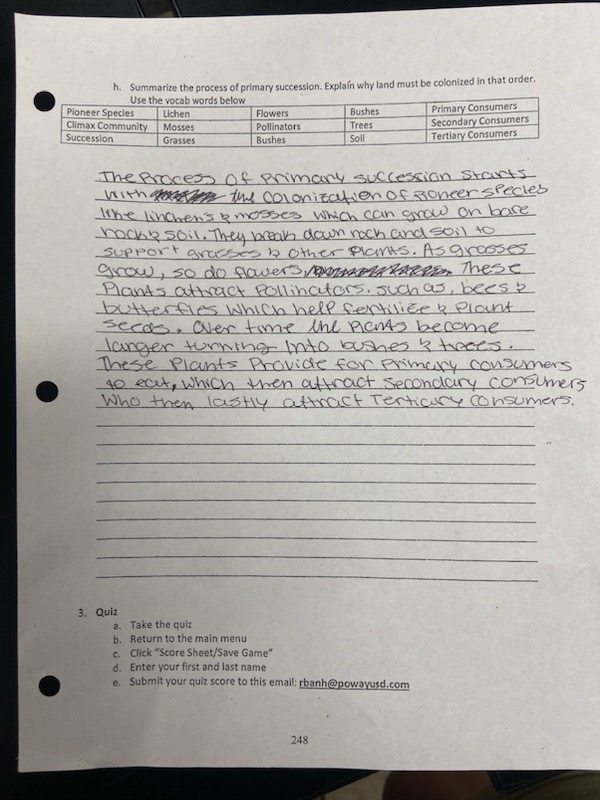 h. Summarize the process of primary succession. Explain why land must be colonized in that order.
Use the vocab words below
Pioneer Species Lichen Flowers Bushes Primary Consumers
Climax Community Mosses Pollinators Trees Secondary Consumers
Succession Grasses Bushes Soil Tertiary Consumers
The Process of primary succession starts
with the colonization of pioneer species
like linchens & mosses which can grow on bare
rock & soil. They break down rock and soil to
support grasses & other plants. As grasses
grow, so do flowers. These
Plants attract Pollinators. such as, bees &
butterflies which help fertilize & plant
seeds. Over time the plants become
larger turning into bushes & trees.
These Plants Provide for Primary consumers
to eat, which then attract Secondary consumers
Who then lastly attract Tertiary consumers.
3. Quiz
a. Take the quiz
b. Return to the main menu
c. Click "Score Sheet/Save Game"
d. Enter your first and last name
e. Submit your quiz score to this email: rbanh@powayusd.com
248